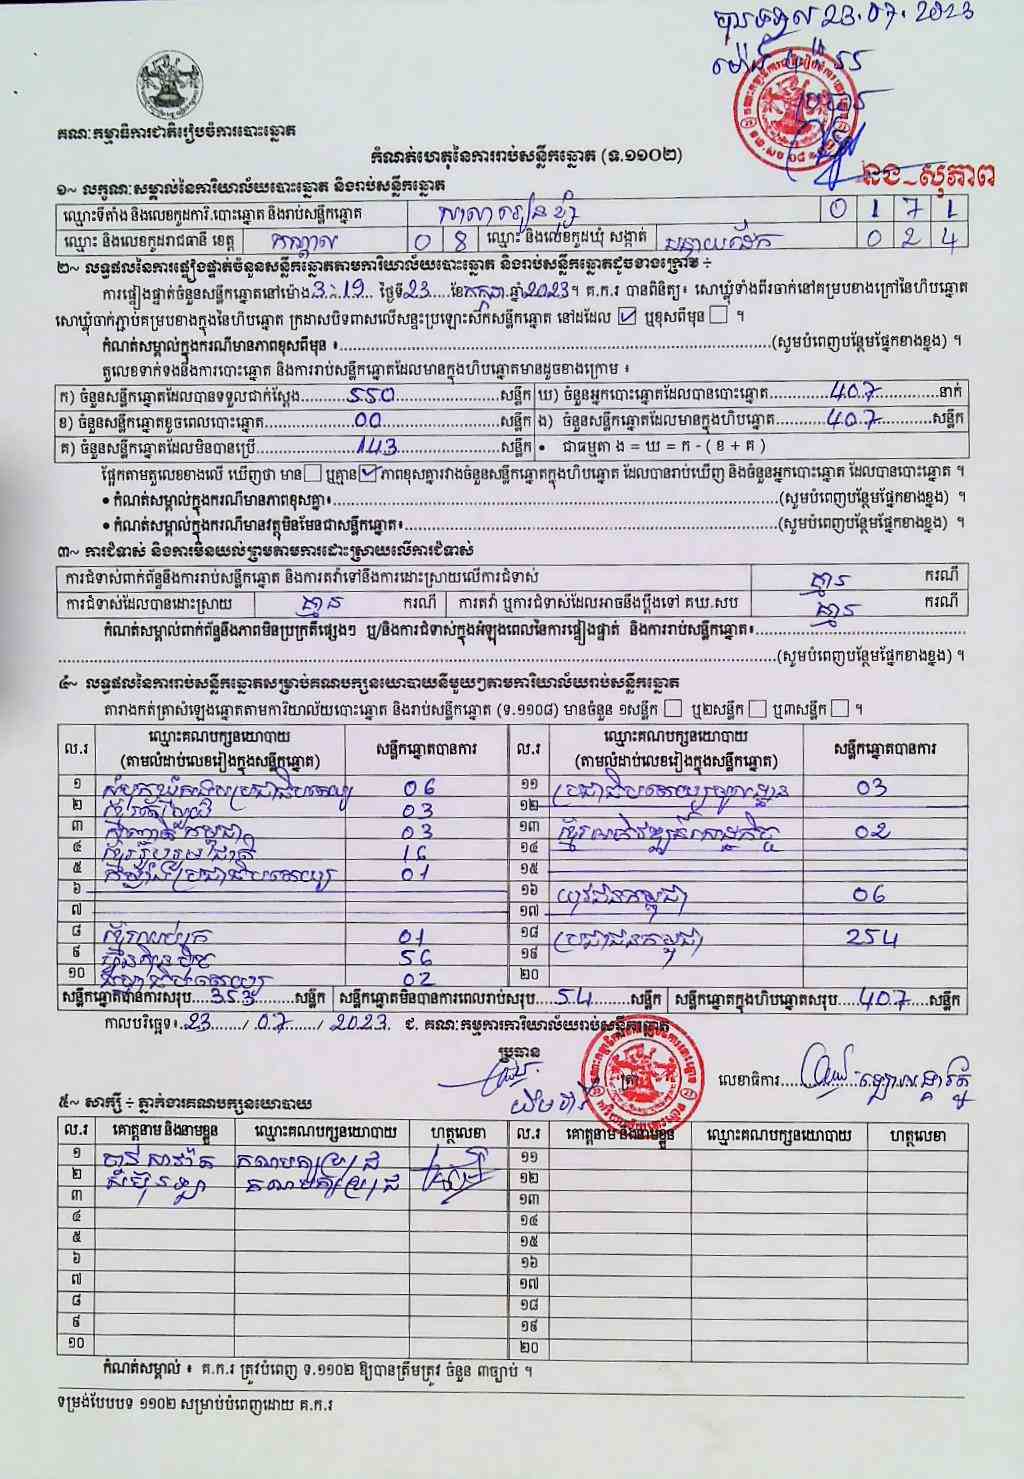 បានទទួល 23.07.2023
ប្រធាន
គណៈកម្មាធិការជាតិរៀបចំការបោះឆ្នោត
កំណត់ហេតុនៃការរាប់សន្លឹកឆ្នោត (ទ.១១០២)
នង សុភាព
១~ លក្ខណៈសម្គាល់នៃការិយាល័យបោះឆ្នោត និងរាប់សន្លឹកឆ្នោត
ឈ្មោះទីតាំង និងលេខកូដការិ.បោះឆ្នោត និងរាប់សន្លឹកឆ្នោត សាលារៀន 0 1 7 1
ឈ្មោះ និងលេខកូដរាជធានី ខេត្ត កណ្តាល 0 8 ឈ្មោះ និងលេខកូដឃុំ សង្កាត់ 0 2 4
២~ លទ្ធផលនៃការផ្ទៀងផ្ទាត់ចំនួនសន្លឹកឆ្នោតតាមការិយាល័យបោះឆ្នោត និងរាប់សន្លឹកឆ្នោតដូចខាងក្រោម ÷
ការផ្ទៀងផ្ទាត់ចំនួនសន្លឹកឆ្នោតនៅម៉ោង 3:19 ថ្ងៃទី 23 ខែ កក្កដា ឆ្នាំ 2023។ គ.ក.រ បានពិនិត្យ៖ សោឃ្លុំទាំងពីរចាក់នៅគម្របខាងក្រៅនៃហិបឆ្នោត
សោឃ្លុំចាក់ភ្ជាប់គម្របខាងក្នុងនៃហិបឆ្នោត ក្រដាសបិទពាសលើសន្ទះប្រឡោះស៊ីកសន្លឹកឆ្នោត នៅដដែល ☑ ឬខុសពីមុន ☐ ។
កំណត់សម្គាល់ក្នុងករណីមានភាពខុសពីមុន ៖ (សូមបំពេញបន្ថែមផ្នែកខាងខ្នង) ។
តួលេខទាក់ទងនឹងការបោះឆ្នោត និងការរាប់សន្លឹកឆ្នោតដែលមានក្នុងហិបឆ្នោតមានដូចខាងក្រោម ៖
ក) ចំនួនសន្លឹកឆ្នោតដែលបានទទួលជាក់ស្តែង 550 សន្លឹក ឃ) ចំនួនអ្នកបោះឆ្នោតដែលបានបោះឆ្នោត 407 នាក់
ខ) ចំនួនសន្លឹកឆ្នោតខូចពេលបោះឆ្នោត 00 សន្លឹក ង) ចំនួនសន្លឹកឆ្នោតដែលមានក្នុងហិបឆ្នោត 407 សន្លឹក
គ) ចំនួនសន្លឹកឆ្នោតដែលមិនបានប្រើ 143 សន្លឹក • ជាធម្មតា ង = ឃ = ក - ( ខ + គ )
ផ្អែកតាមតួលេខខាងលើ ឃើញថា មាន ☐ ឬគ្មាន ☑ ភាពខុសគ្នារវាងចំនួនសន្លឹកឆ្នោតក្នុងហិបឆ្នោត ដែលបានរាប់ឃើញ និងចំនួនអ្នកបោះឆ្នោត ដែលបានបោះឆ្នោត ។
• កំណត់សម្គាល់ក្នុងករណីមានភាពខុសគ្នា៖ (សូមបំពេញបន្ថែមផ្នែកខាងខ្នង) ។
• កំណត់សម្គាល់ក្នុងករណីមានវត្ថុមិនមែនជាសន្លឹកឆ្នោត៖ (សូមបំពេញបន្ថែមផ្នែកខាងខ្នង) ។
៣~ ការជំទាស់ និងការមិនយល់ព្រមតាមការដោះស្រាយលើការជំទាស់
ការជំទាស់ពាក់ព័ន្ធនឹងការរាប់សន្លឹកឆ្នោត និងការតវ៉ាទៅនឹងការដោះស្រាយលើការជំទាស់ គ្មាន ករណី
ការជំទាស់ដែលបានដោះស្រាយ គ្មាន ករណី ការតវ៉ា ឬការជំទាស់ដែលអាចនឹងប្តឹងទៅ គឃ.សប គ្មាន ករណី
កំណត់សម្គាល់ពាក់ព័ន្ធនឹងភាពមិនប្រក្រតីផ្សេងៗ ឬ/និងការជំទាស់ក្នុងអំឡុងពេលនៃការផ្ទៀងផ្ទាត់ និងការរាប់សន្លឹកឆ្នោត៖
(សូមបំពេញបន្ថែមផ្នែកខាងខ្នង) ។
៤~ លទ្ធផលនៃការរាប់សន្លឹកឆ្នោតសម្រាប់គណបក្សនយោបាយនីមួយៗតាមការិយាល័យរាប់សន្លឹកឆ្នោត
តារាងកត់ត្រាសំឡេងឆ្នោតតាមការិយាល័យបោះឆ្នោត និងរាប់សន្លឹកឆ្នោត (ទ.១១០៨) មានចំនួន ១សន្លឹក ☐ ឬ២សន្លឹក ☐ ឬ៣សន្លឹក ☐ ។
ល.រ ឈ្មោះគណបក្សនយោបាយ (តាមលំដាប់លេខរៀងក្នុងសន្លឹកឆ្នោត) សន្លឹកឆ្នោតបានការ ល.រ ឈ្មោះគណបក្សនយោបាយ (តាមលំដាប់លេខរៀងក្នុងសន្លឹកឆ្នោត) សន្លឹកឆ្នោតបានការ
១ 06 ១១ 03
២ 03 ១២
៣ 03 ១៣ 02
៤ ខ្មែររួបរួមជាតិ 16 ១៤
៥ 01 ១៥
៦ ១៦ យុវជនកម្ពុជា 06
៧ ១៧
៨ 01 ១៨ ប្រជាជនកម្ពុជា 254
៩ ហ្វ៊ុនស៊ិនប៉ិច 56 ១៩
១០ 02 ២០
សន្លឹកឆ្នោតបានការសរុប 353 សន្លឹក សន្លឹកឆ្នោតមិនបានការពេលរាប់សរុប 54 សន្លឹក សន្លឹកឆ្នោតក្នុងហិបឆ្នោតសរុប 407 សន្លឹក
កាលបរិច្ឆេទ៖ 23 / 07 / 2023 ជ. គណៈកម្មការការិយាល័យរាប់សន្លឹកឆ្នោត
ប្រធាន
ត្រា លេខាធិការ
៥~ សាក្សី ÷ ភ្នាក់ងារគណបក្សនយោបាយ
ល.រ គោត្តនាម និងនាមខ្លួន ឈ្មោះគណបក្សនយោបាយ ហត្ថលេខា ល.រ គោត្តនាម និងនាមខ្លួន ឈ្មោះគណបក្សនយោបាយ ហត្ថលេខា
១ ១១
២ ១២
៣ ១៣
៤ ១៤
៥ ១៥
៦ ១៦
៧ ១៧
៨ ១៨
៩ ១៩
១០ ២០
កំណត់សម្គាល់ ៖ គ.ក.រ ត្រូវបំពេញ ទ.១១០២ ឱ្យបានត្រឹមត្រូវ ចំនួន ៣ច្បាប់ ។
ទម្រង់បែបបទ ១១០២ សម្រាប់បំពេញដោយ គ.ក.រ